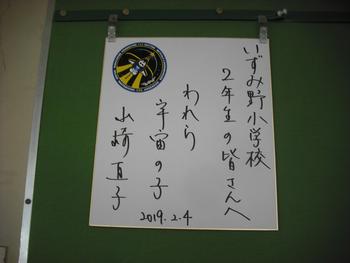 いずみ野小学校
2年生の皆さんへ
われら
宇宙の子
山崎直子
2019.2.4